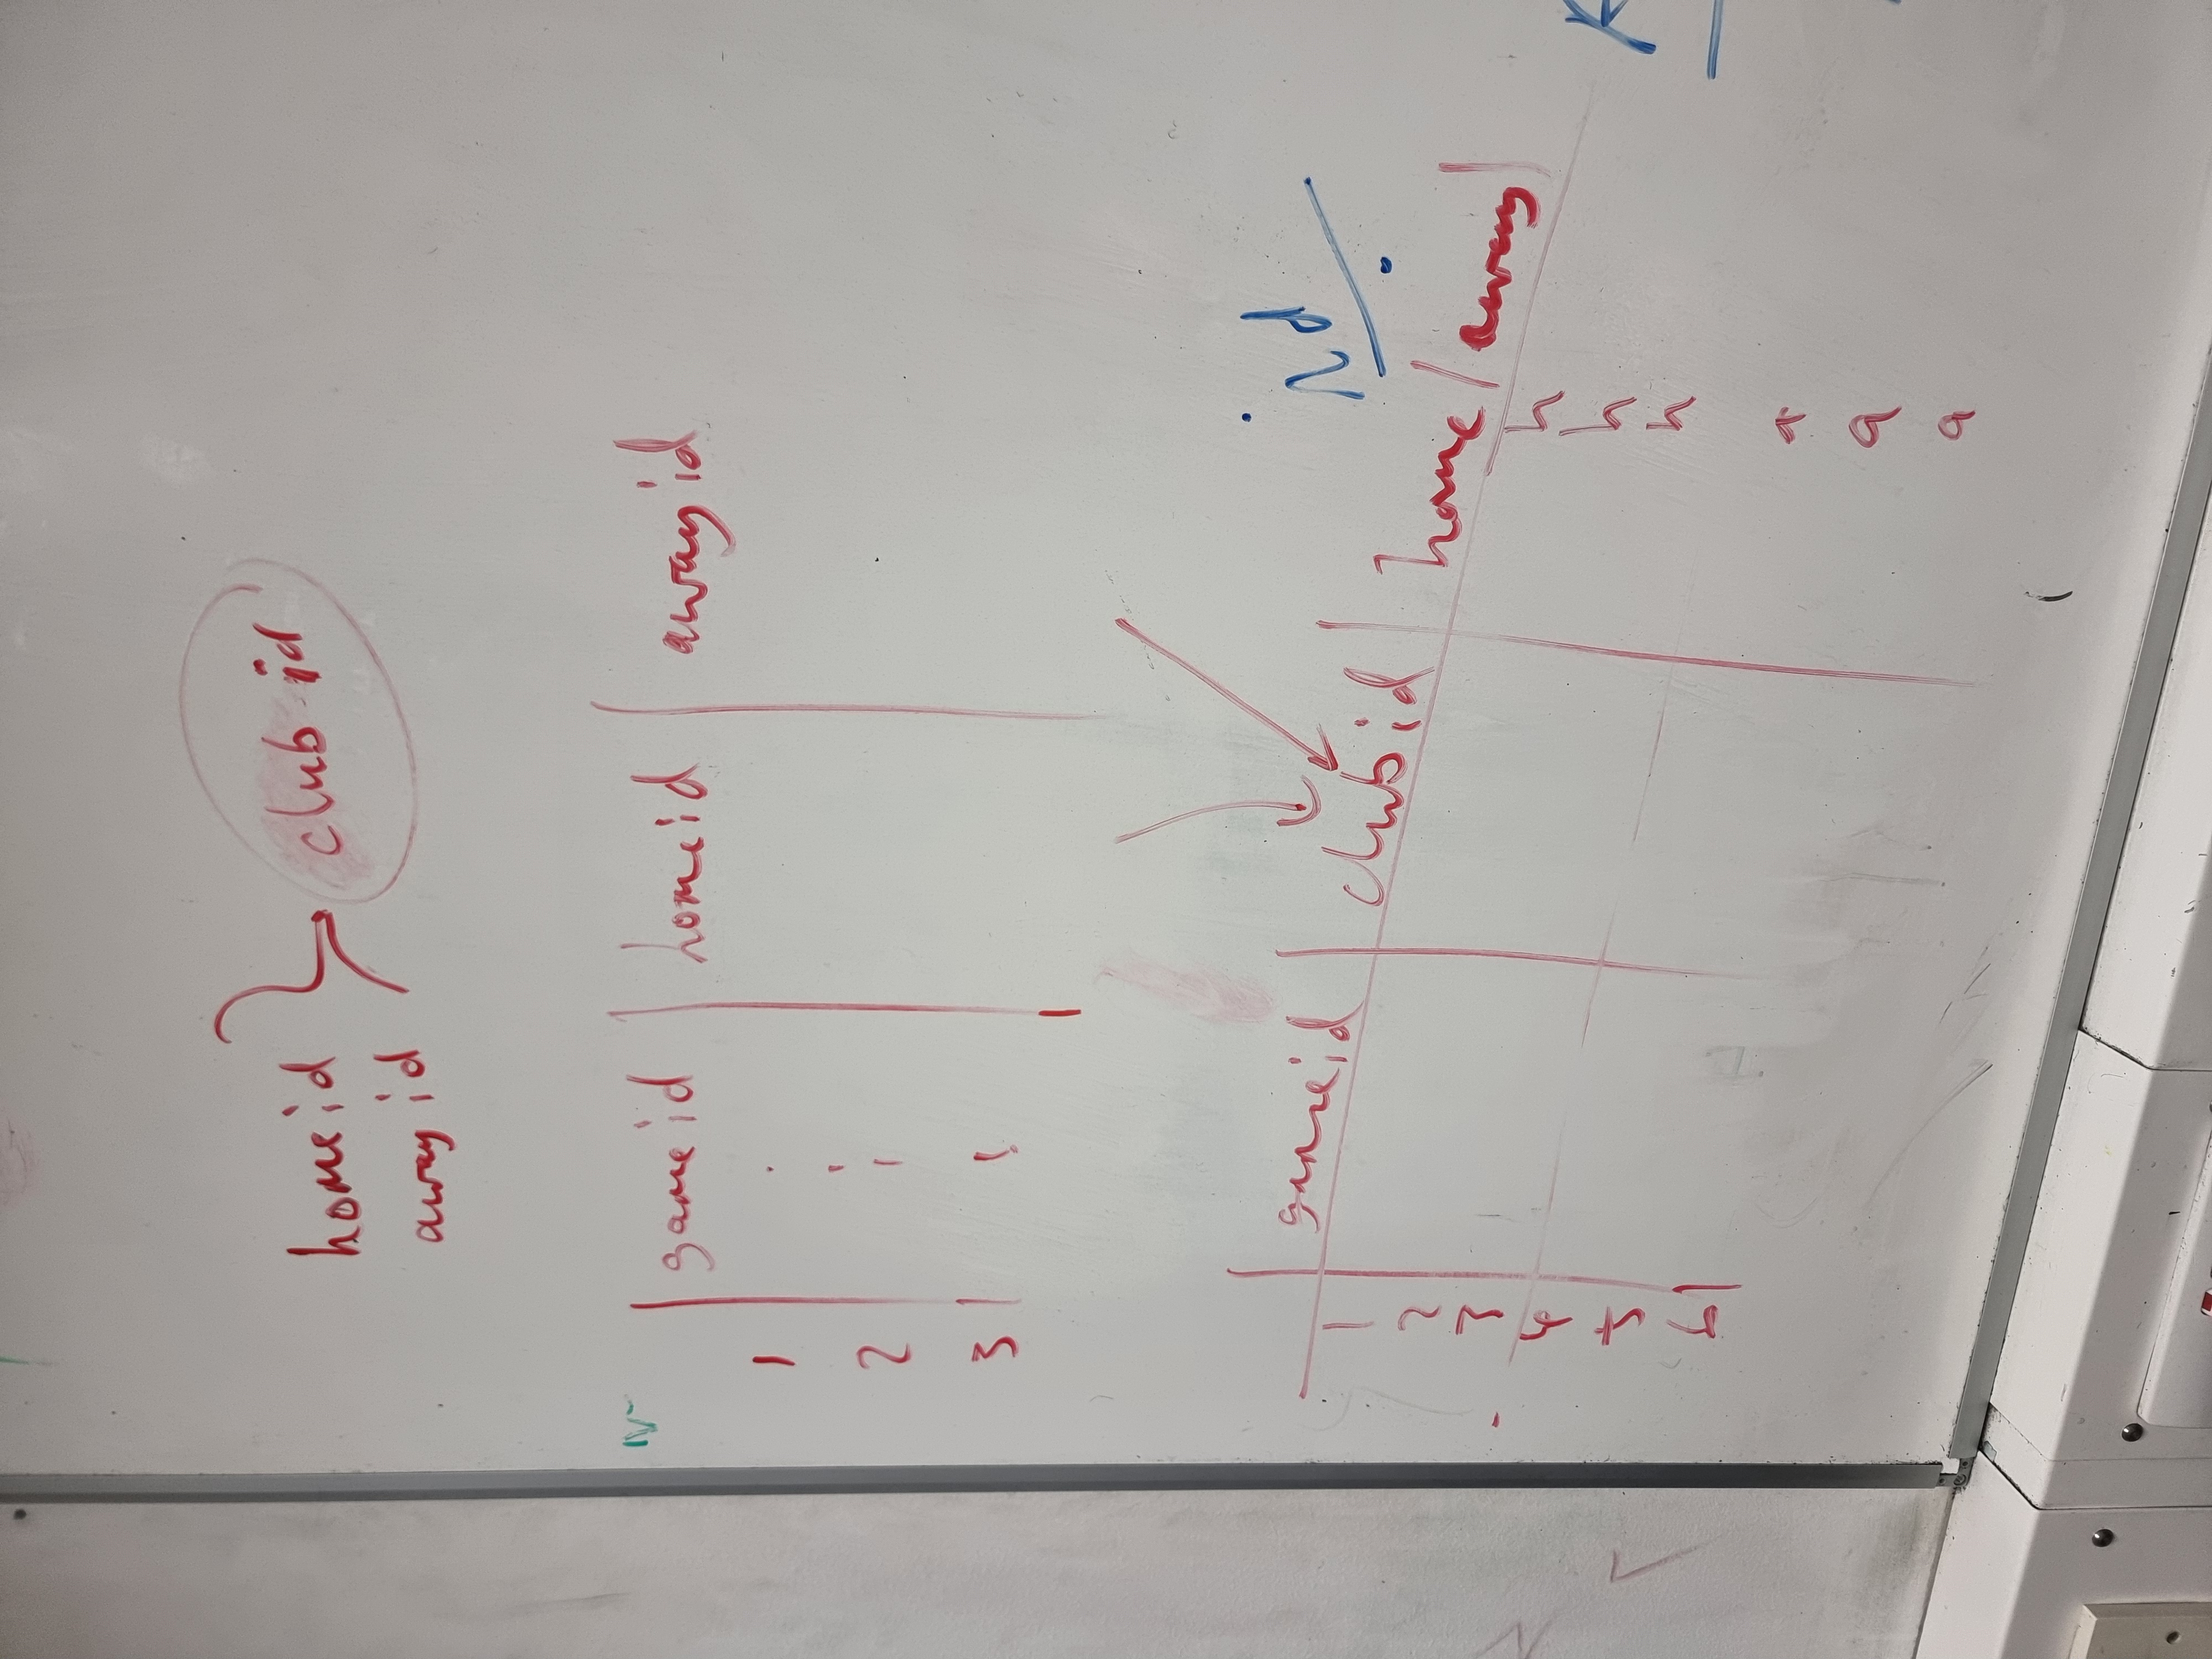 home id
away id
club id
game id home id away id
1
2
3
id
game id club id home / away
1 h
2 h
3 h
4 a
5 a
6 a